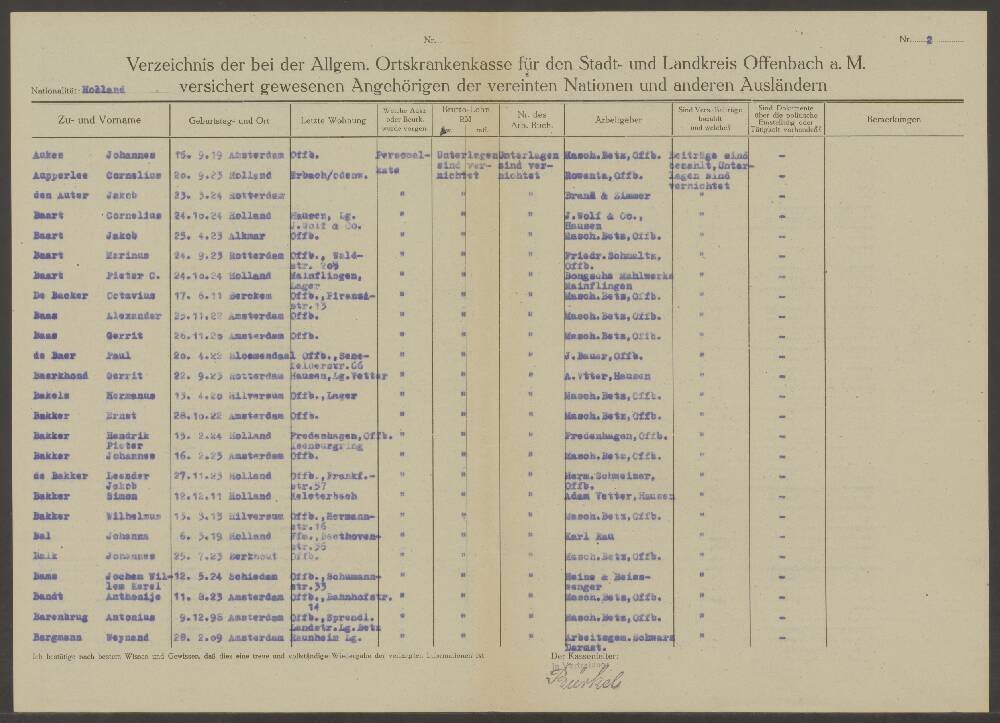 Nr.
Nr. 2
Verzeichnis der bei der Allgem. Ortskrankenkasse für den Stadt- und Landkreis Offenbach a. M.
Nationalität: Holland versichert gewesenen Angehörigen der vereinten Nationen und anderen Ausländern
Zu- und Vorname Geburtstag- und Ort Letzte Wohnung Welche Arzt oder Beurk. wurde vorgen. Brutto-Lohn RM mtl. Nr. des Arb. Buch. Arbeitgeber Sind Vers. Beiträge bezahlt und welche? Sind Dokumente über die polizische Einstellung oder Tätigkeit vorhanden? Bemerkungen
Aukes Johannes 15. 9.19 Amsterdam Offb. Personal- Unterlagen Unterlagen Masch.Betz,Offb. Beiträge sind -
kate sind ver- sind ver- bezahlt,Unter-
Aupperlee Cornelius 20. 9.23 Holland Erbach/odenw. nichtet nichtet Rowenta,Offb. lagen sind -
vernichtet
den Auter Jakob 23. 3.24 Rotterdam " " " Brand & Zimmer " -
Baart Cornelius 24.10.24 Holland Hausen, Lg. " " " J.Wolf & Co., " -
J.Wolf & Co. Hausen
Baart Jakob 25. 4.23 Alkmar Offb. " " " Masch.Betz,Offb. " -
Baart Marinus 24. 9.23 Rotterdam Offb., Wald- " " " Friedr.Schmaltz, " -
str. Offb.
Baart Pieter C. 24.10.24 Holland Mainflingen, " " " Bongsche Mahlwerke " -
Lager Mainflingen
De Backer Octavius 17. 6.11 Berckem Offb.,Pirazzi- " " " Masch.Betz,Offb. " -
str.13
Baas Alexander 25.11.22 Amsterdam Offb. " " " Masch.Betz,Offb. " -
Baas Gerrit 26.11.20 Amsterdam Offb. " " " Masch.Betz,Offb. " -
de Baer Paul 20. 4.22 Bloemendaal Offb.,Sene- " " " J.Bauer,Offb. " -
felderstr.66
Baerkhond Gerrit 22. 9.23 Rotterdam Hausen,Lg.Vetter " " " A.Vtter,Hausen " -
Bakels Hermanus 13. 4.20 Hilversum Offb.,Lager " " " Masch.Betz,Offb. " -
Bakker Ernst 28.10.22 Amsterdam Offb. " " " Masch.Betz,Offb. " -
Bakker Hendrik 19. 2.24 Holland Fredenhagen,Offb. " " " Fredenhagen,Offb. " -
Pieter Isenburgring
Bakker Johannes 16. 2.23 Amsterdam Offb. " " " Masch.Betz,Offb. " -
de Bakker Leender 27.11.23 Holland Offb.,Frankf.- " " " Herm.Schweizer, " -
Jakob str.57 Offb.
Bakker Simon 12.12.11 Holland Kelsterbach " " " Adam Vetter,Hausen " -
Bakker Wilhelmus 13. 3.13 Hilversum Offb.,Hermann- " " " Masch.Betz,Offb. " -
str.16
Bal Johanna 6. 3.19 Holland Ffm.,Beethoven- " " " Karl Rau " -
str.36
Balk Johannes 25. 7.23 Berkhout Offb. " " " Masch.Betz,Offb. " -
Bams Jochen Wil- 12. 5.24 Schiedam Offb.,Schumann- " " " Heine & Beiss- " -
lem Karel str.33 wenger
Bandt Anthonije 11. 8.23 Amsterdam Offb.,Bahnhofstr. " " " Masch.Betz,Offb. " -
14
Barenbrug Antonius 9.12.98 Amsterdam Offb.,Sprendl. " " " Masch.Betz,Offb. " -
Landstr.Lg.Betz
Bargmann Weynand 28. 2.09 Amsterdam Raunheim Lg. " " " Arbeitsgem.Schwarz " -
Darmst.
Ich bestätige nach bestem Wissen und Gewissen, daß dies eine treue und vollständige Wiedergabe der verlangten Informationen ist Der Kassenleiter:
In Vertretung